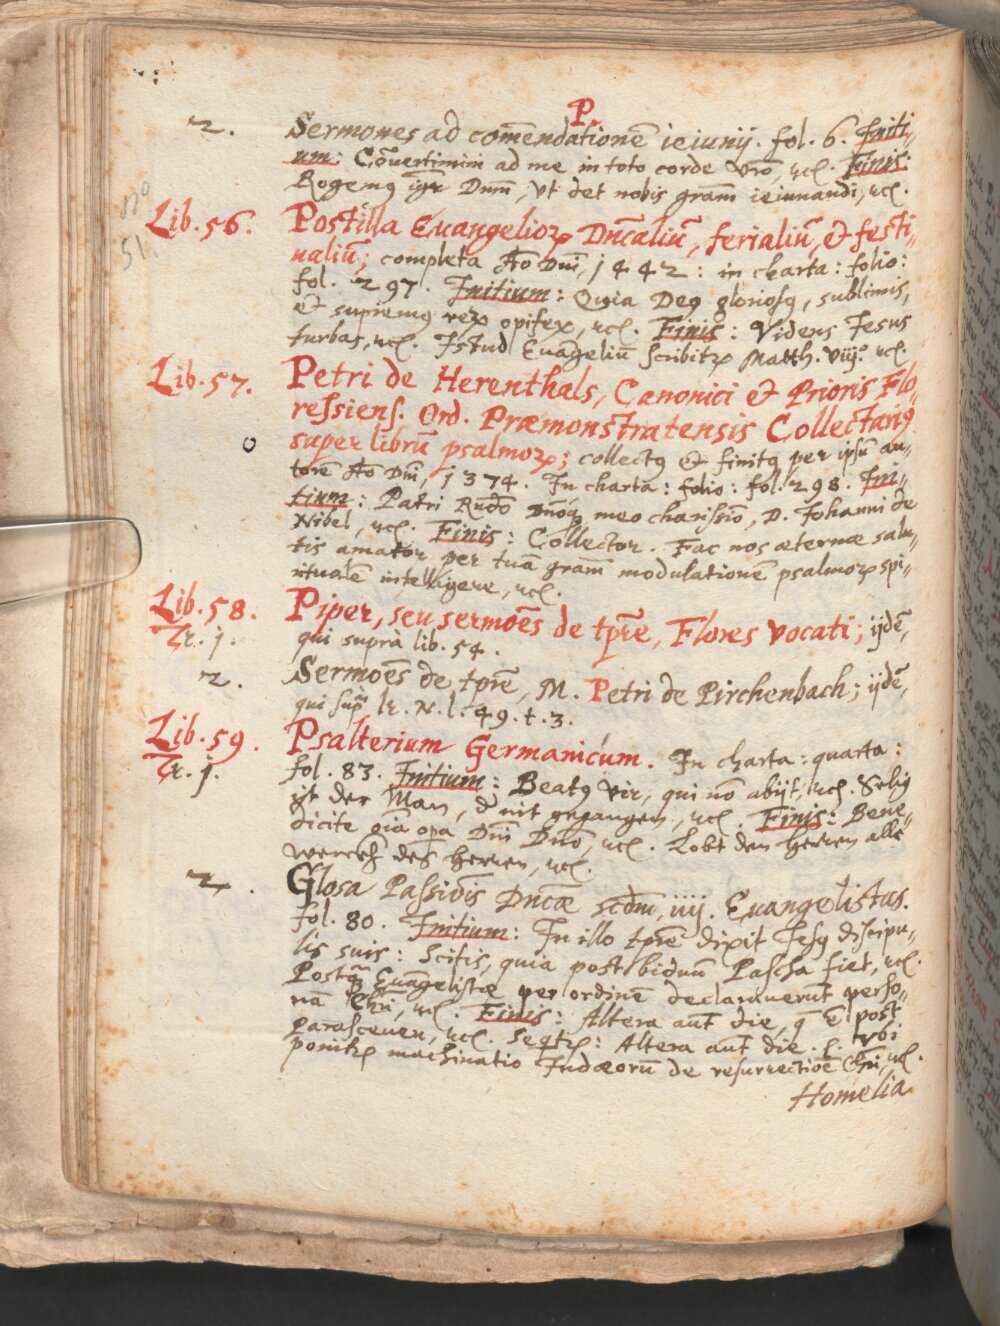 P.
2. Sermones ad com̄endationē ieiunij. fol. 6. Initi-
um: Cōuertimini ad me in toto corde vr̄o, ꝛcꝭ. Finis:
Rogemꝰ igr̄ Dnm̄, vt det nobis gram̄ ieiunandi, ꝛcꝭ.
Lib. 56. Postilla Euangelioꝝ Dn̄caliū, ferialiū, et festi-
51.
ualiū; completa Aō Dn̄i, 1442: in charta: folio:
fol. 297. Initium: Quia Deꝰ gloriosꝰ, sublimis,
et supremꝰ rex opifex, ꝛcꝭ. Finis: Videns Jesus
turbas, ꝛcꝭ. Istud Euāgeliū scribitꝝ Matth. viij.º ꝛcꝭ.
Lib. 57. Petri de Herenthals, Canonici et Prioris Flo-
ressiens. Ord. Præmonstratensis Collectariꝰ
super librū psalmoꝝ; collectꝰ et finitꝰ per ipsū au-
torē Aō Dn̄i, 1374. In charta: folio: fol. 298. Ini-
tium: Patri Rn̄do Dn̄oqꝫ meo charissīo, D. Johanni de
Nibel, ꝛcꝭ. Finis: Collector. Fac nos æternæ salu-
tis amator per tuā gram̄ modulationē psalmoꝝ spi-
ritualē intelligere, ꝛcꝭ.
Lib. 58. Piper, seu sermōes de tp̄re, Flores vocati; ijdē,
Tr. j. qui suprà lib. 54.
2. Sermōes de tp̄re, M. Petri de Pirchenbach; ijdē,
qui sup̄ lr. N. l. 49. t. 3.
Lib. 59. Psalterium Germanicum. In charta: quarta:
Tr. j. fol. 83. Initium: Beatꝰ vir, qui nō abijt, ꝛcꝭ. Selig
ist der Man, d̄ nit gegangen, ꝛcꝭ. Finis: Bene-
dicite oīa opa Dn̄i Dn̄o, ꝛcꝭ. Lobt den Herren alle
werckh deß Herren, ꝛcꝭ.
2. Glosa Passiōis Dn̄cæ scdm̄, iiij. Euangelistas.
fol. 80. Initium: In illo tp̄re dixit Jesꝰ discipu-
lis suis: Scitis, quia post biduū Pascha fiet, ꝛcꝭ.
Postqꝫ Euāgelistæ per ordinē declarauerūt perso-
nā Chr̄i, ꝛcꝭ. Finis: Altera aūt die, q̄ ē post
Parasceuen, ꝛcꝭ. Seqtꝝ: Altera aūt die. c. vbi
ponitꝝ machinatio Judæorū de resurrectiōe Chr̄i, ꝛcꝭ.
Homelia